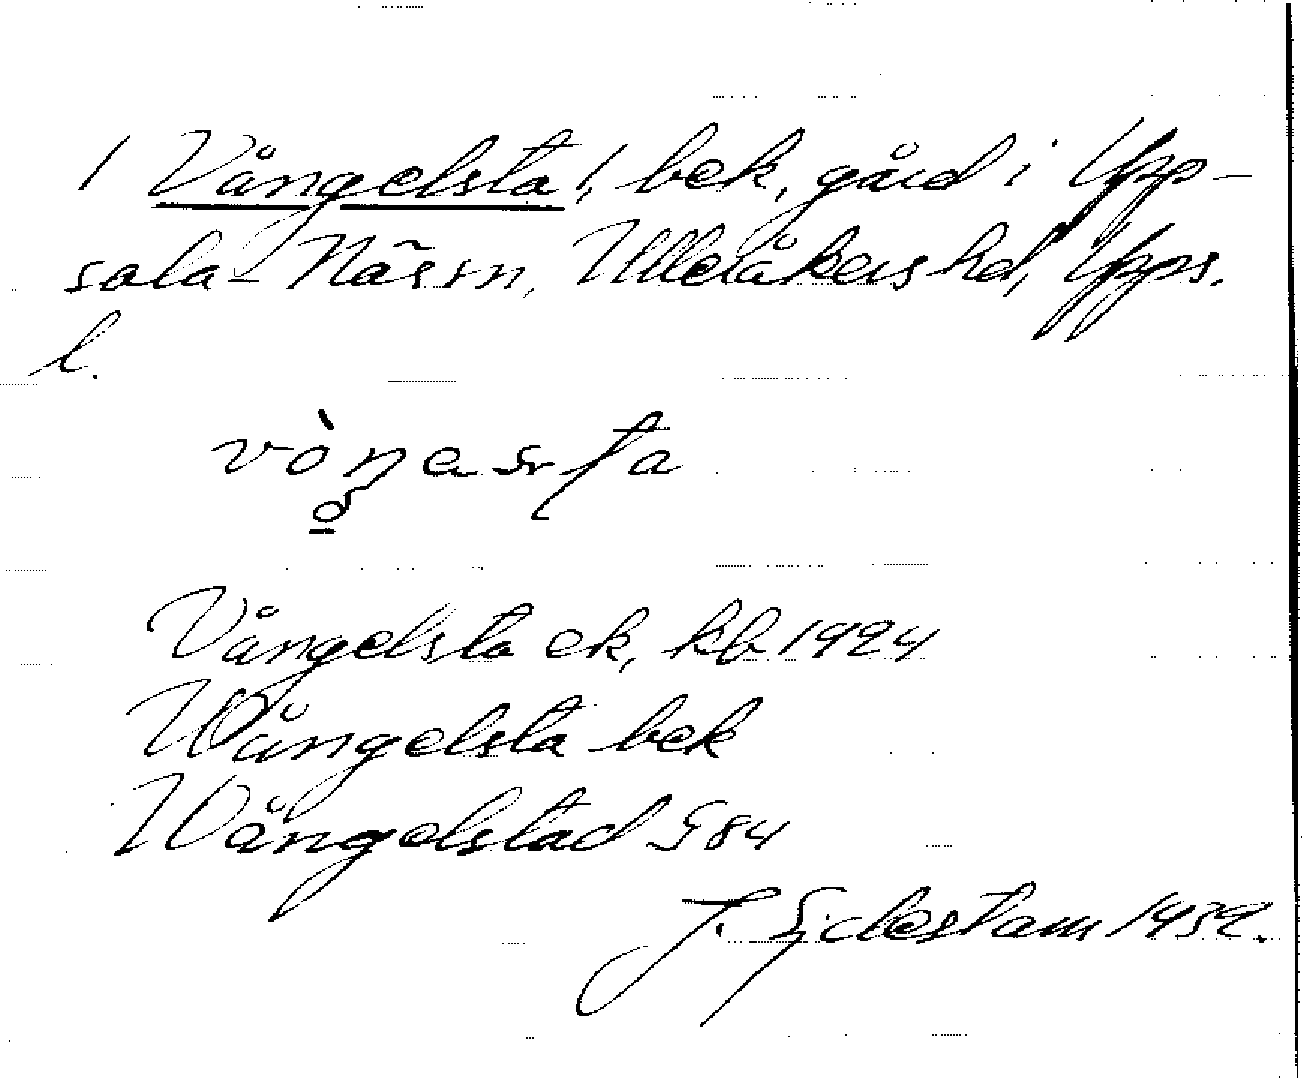 / Vångelsta /, bek, gård i Upp-
sala-Näs sn, Ulleråkers hd, Upps.
l.
vòŋesta
Vångelsta ek, kb 1924
Wångelsta bek
Wångelstad G 84
F. Gidestam 1932.